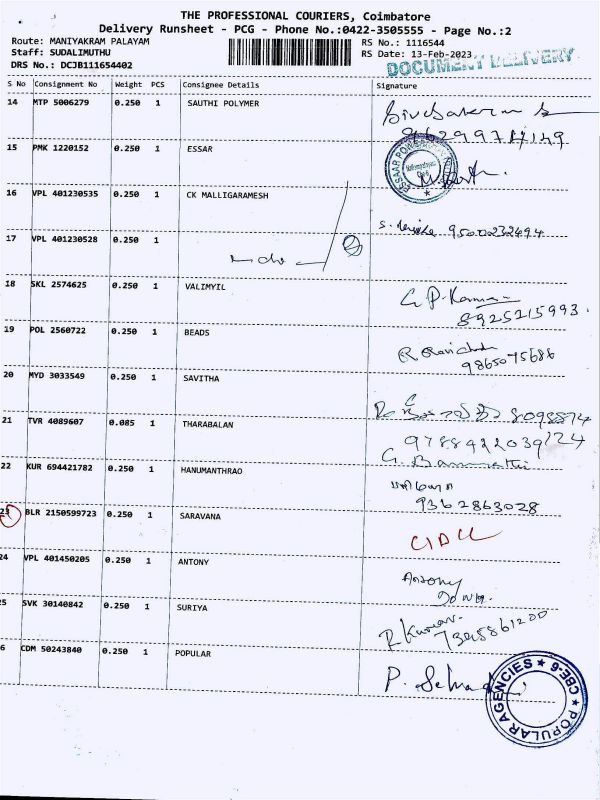 THE PROFESSIONAL COURIERS, Coimbatore
Delivery Runsheet - PCG - Phone No.:0422-3505555 - Page No.:2
Route: MANIYAKRAM PALAYAM RS No.: 1116544
Staff: SUDALIMUTHU RS Date: 13-Feb-2023
DRS No.: DCJB111654402 DOCUMENT DELIVERY
S No Consignment No Weight PCS Consignee Details Signature
14 MTP 5006279 0.250 1 SAUTHI POLYMER
15 PMK 1220152 0.250 1 ESSAR
16 VPL 401230535 0.250 1 CK MALLIGARAMESH
9500232494
17 VPL 401230528 0.250 1
18 SKL 2574625 0.250 1 VALIMYIL
8925215993
19 POL 2560722 0.250 1 BEADS
9865075686
20 MYD 3033549 0.250 1 SAVITHA
21 TVR 4089607 0.085 1 THARABALAN
22 KUR 694421782 0.250 1 HANUMANTHRAO
9362863028
23 BLR 2150599723 0.250 1 SARAVANA
24 VPL 401450205 0.250 1 ANTONY Antony
SVK 30140842 0.250 1 SURIYA R Kumar
CDM 50243840 0.250 1 POPULAR
POPULAR AGENCIES ★ CBE-6 ★